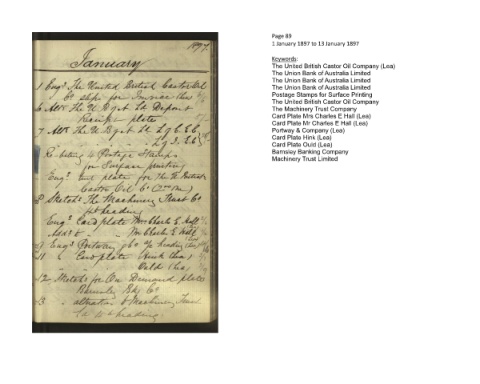 1897
January
1 Engd The United British Castor Oil
Co slip for Invoice (Lea)
6 Altr The U B of A Ld Deposit
Receipt plate
7 Altr The U B of A Ld
Re-biting 4 Postage Stamps
for Surface printing
Engd plate for The U British
Castor Oil Co
8 Sketch The Machinery Trust Co
heading
Engd Card plate Mrs Charls E Hall
Mr Charls E Hall
9 Engd Portway & Co heading (Lea)
11 " Card plate Hink (Lea)
Ould (Lea)
12 Sketch for On Demand plate
Barnsley Bkg Co
13 " alteration to Machinery Trust
Ld heading
Page 89
1 January 1897 to 13 January 1897
Keywords:
The United British Castor Oil Company (Lea)
The Union Bank of Australia Limited
The Union Bank of Australia Limited
The Union Bank of Australia Limited
Postage Stamps for Surface Printing
The United British Castor Oil Company
The Machinery Trust Company
Card Plate Mrs Charles E Hall (Lea)
Card Plate Mr Charles E Hall (Lea)
Portway & Company (Lea)
Card Plate Hink (Lea)
Card Plate Ould (Lea)
Barnsley Banking Company
Machinery Trust Limited